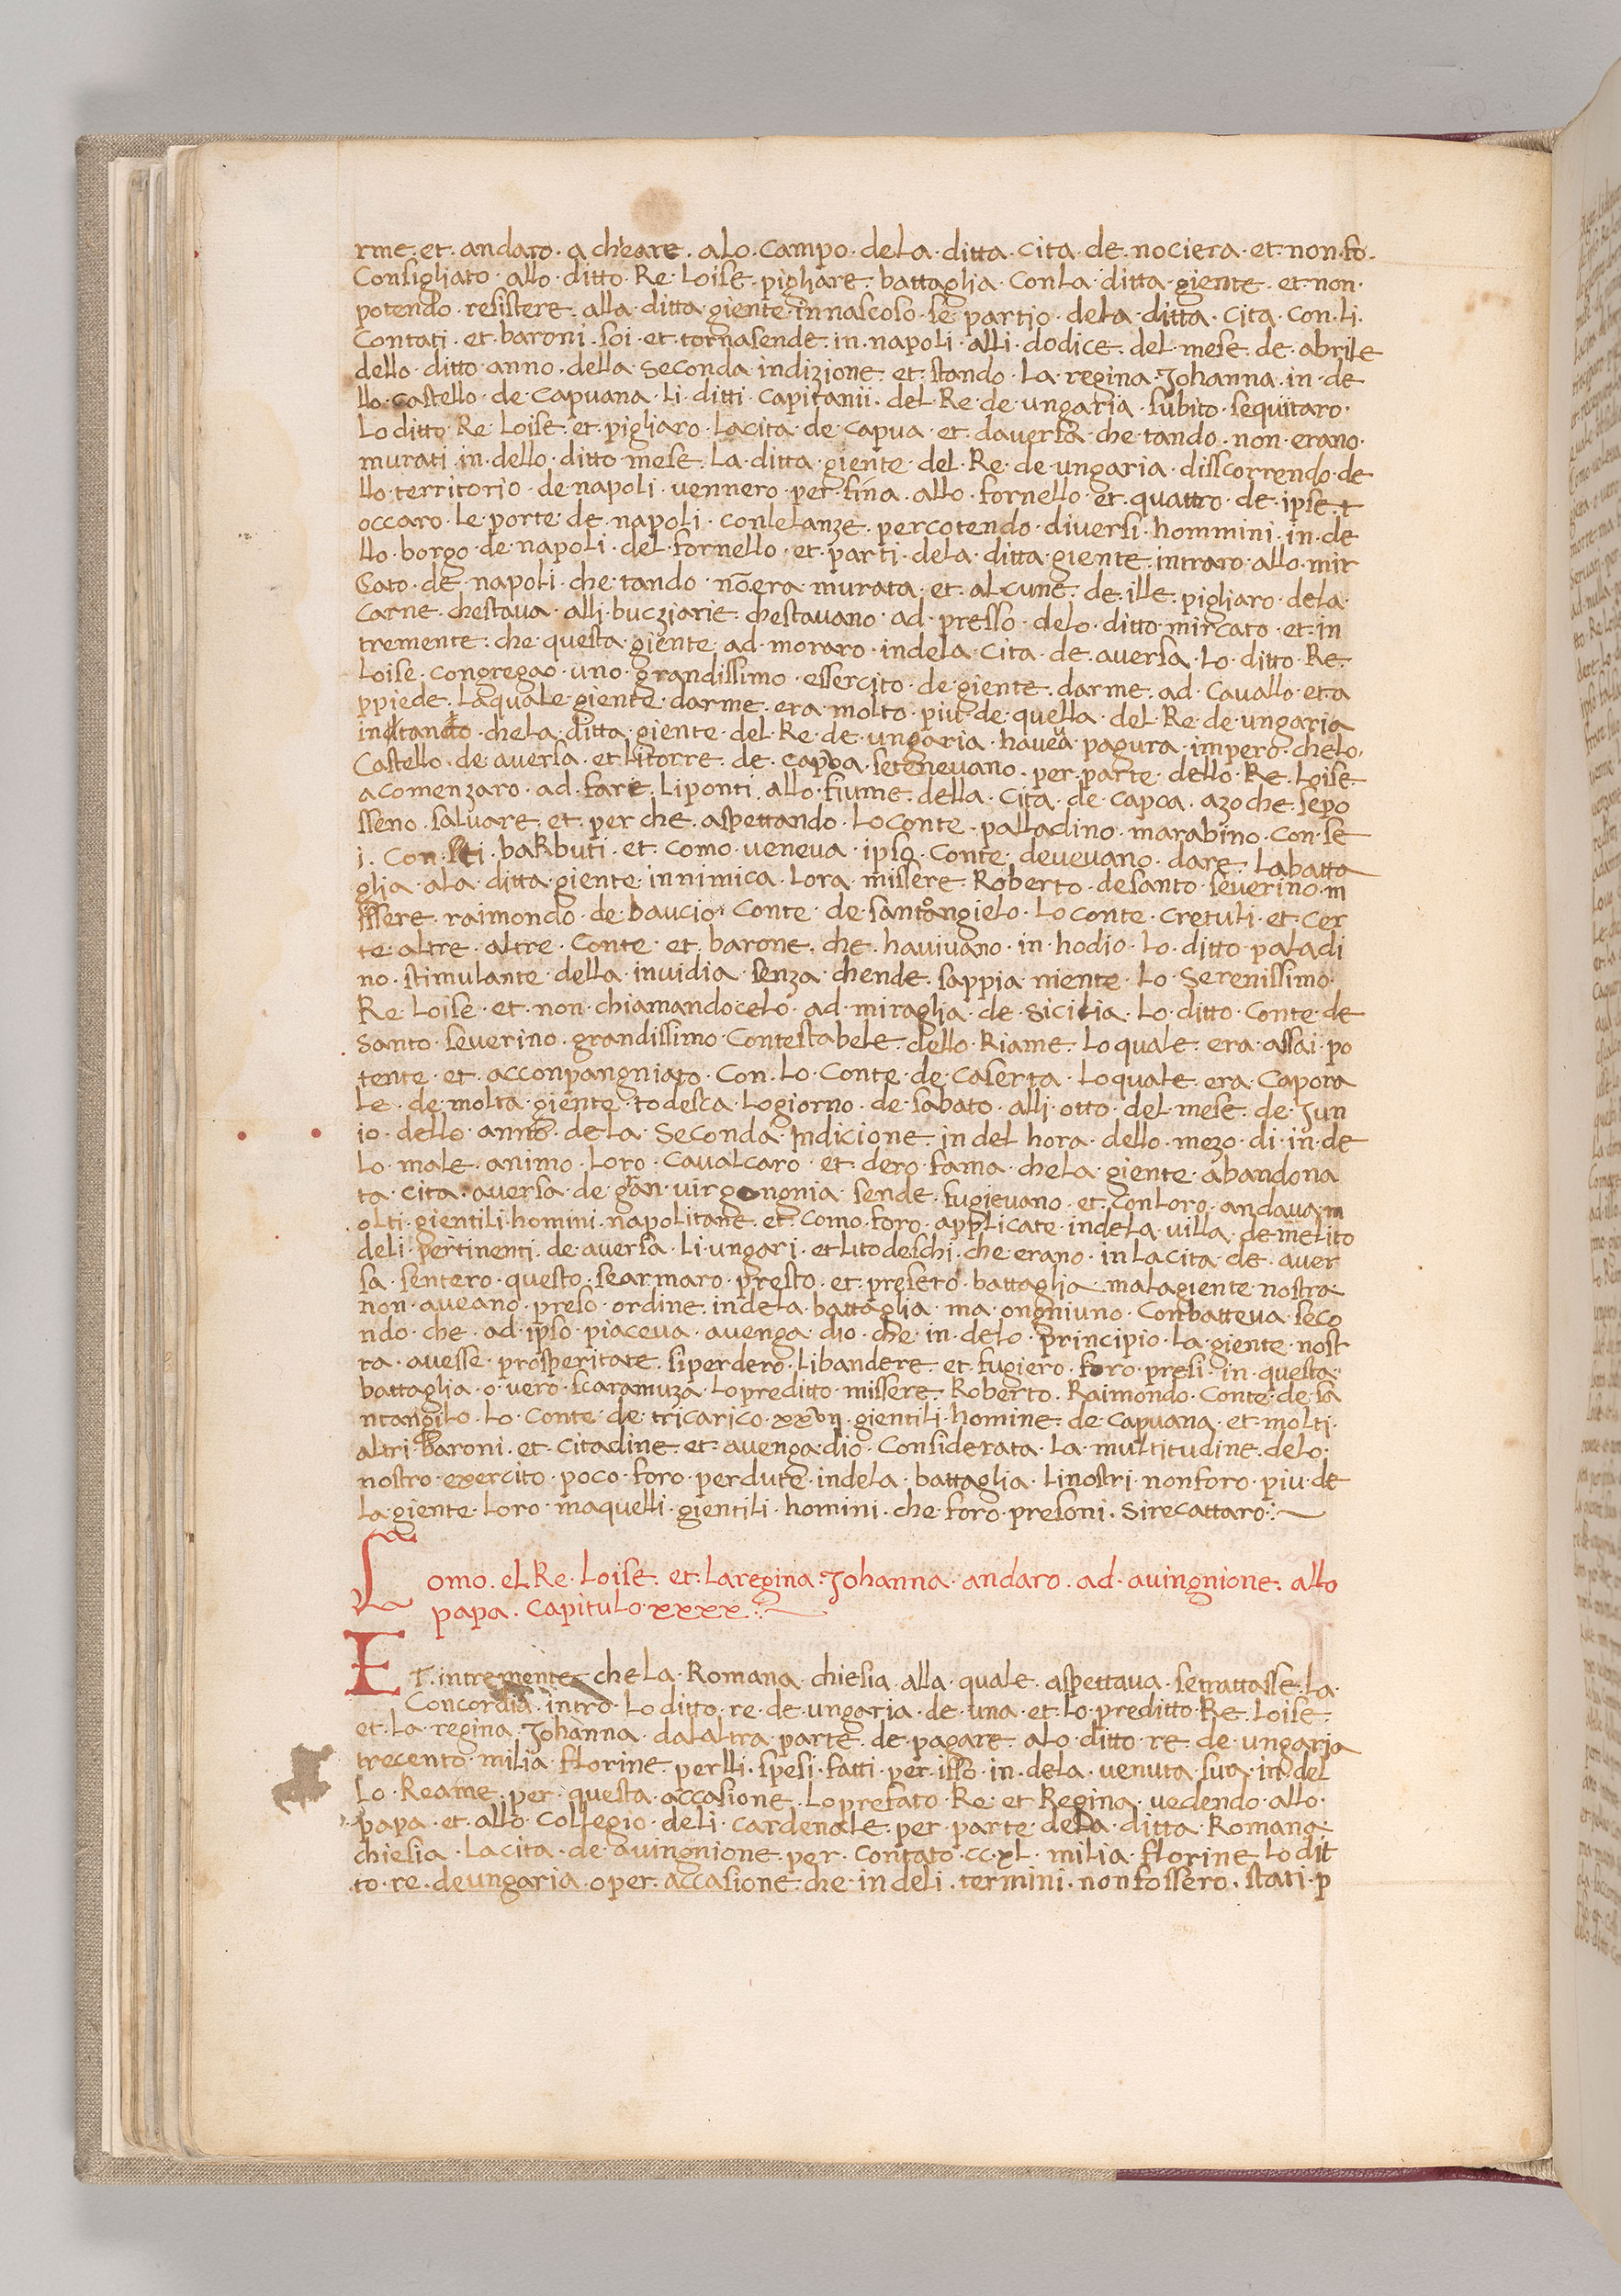 rme. et. andaro. a cheare. alo. campo. dela. ditta. cita. de. nociera. et. non. fo.
Consigliato. allo. ditto. Re. Loise. pighare. battaglia. Con La. ditta. giente. et. non.
potendo. resistere. alla. ditta. giente. in nascoso. se partio. dela. ditta. Cita. Con. Li.
Contati. et. baroni. soi. et. tornasende. in. napoli. alli. dodice. del. mese. de. abrile
dello. ditto. anno. della. seconda. indizione. et. stando. La. regina. Johanna. in. de
llo. castello. de. capuana. Li. ditti. capitanii. del. Re. de. ungaria. subito. sequitaro.
Lo ditto. Re. Loise. et. pigliaro. La cita. de. capua. et. daversa. che. tando. non. erano.
murati. in. dello. ditto. mese. La. ditta. giente. del. Re. de. ungaria. disscorrendo. de
llo. territorio. de napoli. vennero. per. fina. allo. fornello. et. quattro. de. ipse. t
occaro. le. porte. de. napoli. con le lanze. percotendo. diversi. hommini. in. de
llo. borgo. de napoli. del. fornello. et. parti. dela. ditta. giente. intraro. allo. mir
Cato. de. napoli. che. tando. nō era. murata. et. alcune. de. ille. pigliaro. dela.
Carne. chestava. alli. bucziarie. chestavano. ad. presso. delo. ditto. mircato. et. in
tremente. che. questa. giente. ad. moraro. indela. cita. de. aversa. Lo. ditto. Re.
Loise. congregao. uno. grandissimo. essercito. de. giente. darme. ad. Cavallo. et. a
ppiede. La quale. giente. darme. era. molto. piu. de. quella. del. Re. de. ungaria
inditando. che La. ditta. giente. del. Re. de. ungaria. havea. pagura. impero. chelo.
Castello. de. aversa. et Li torre. de. capoa. se tenevano. per. parte. dello. Re. Loise.
acomenzaro. ad. fare. Li ponti. allo. fiume. della. cita. de. capoa. azoche. se po
sseno. salvare. et. per che. aspettando. Lo conte. palladino. marabino. con. se
i. Con. barbuti. et. como. veneva. ipso. Conte. devevano. dare. La batta
glia. ala. ditta. giente. innimica. Lora. missere. Roberto. de santo. severino. m
issere. raimondo. de. baucio. Conte. de. santo angielo. Lo conte. cretuli. et. cer
te. altre. altre. Conte. et. barone. che. havivano. in. hodio. lo. ditto. paladi
no. stimulante. della. invidia. senza. chende. sappia. niente. lo. Serenissimo.
Re. Loise. et. non. chiamandocelo. ad. miraglia. de. sicilia. Lo. ditto. Conte. de
santo. severino. grandissimo. Contestabele. dello. Riame. Lo quale. era. assai. po
tente. et. acconpangniato. Con. Lo. Conte. de. caserta. Lo quale. era. Capora
le. de. molta. giente. todesca. Lo giorno. de. sabato. alli. otto. del. mese. de. Jun
io. dello. anno. dela. seconda. Indicione. in del hora. dello. mezo. di. in. de
Lo. male. animo. Loro. Cavalcaro. et. dero. fama. che La. giente. abandona
ta. cita. aversa. de. gran. virgongnia. sende. fugievano. et. con Loro. andava. m
olti. gientili. homini. napolitane. et. como. foro. applicate. indela. villa. de melito
deli. pertinenti. de. aversa. Li. ungari. et Li todeschi. che. erano. in La cita. de. aver
sa. sentero. questo. se armaro. presto. et. presero. battaglia. ma La giente. nostra.
non. aveano. preso. ordine. in de la. battaglia. ma. ongniuno. Conbatteva. seco
ndo. che. ad. ipso. piaceva. avenga. dio. che. in. delo. principio. La. giente. nost
ra. avesse. prosperitate. si perdero. Li bandere. et. fugiero. foro. presi. in. questa.
battaglia. o. vero. scaramuza. Lo preditto. missere. Roberto. Raimondo. Conte. de. sa
ntangilo. Lo. conte. de. tricarico. xxvij. gientili. homine. de. capuana. et. molti.
altri. baroni. et. citadine. et. avenga. dio. Considerata. La. multitudine. delo.
nostro. exercito. poco. foro. perdute. indela. battaglia. Li nostri. non foro. piu. de
La. giente. Loro. ma quelli. gientili. homini. che. foro. presoni. si recattaro:~
Como. el Re. Loise. et. La regina. Johanna. andaro. ad. avingnione. allo
papa. capitulo. xxxx:~
ET. intremente. che La. Romana. chiesia. alla. quale. aspettava. se trattasse. La.
Concordia. intro. Lo ditto. re. de. ungaria. de. una. et. lo. preditto. Re. Loise.
et. La. regina. Johanna. dalaltra. parte. de. pagare. alo. ditto. re. de. ungaria
trecento. milia. florine. perlli. spesi. fatti. per. isso. in. dela. venuta. sua. in. del
Lo. Reame. per. questa. accasione. Lo prefato. Re. et. Regina. vedendo. allo.
papa. et. allo. Collegio. deli. cardenale. per. parte. dela. ditta. Romana.
chiesia. La cita. de. avingnione. per. Contato. cc.xl. milia. florine. Lo dit
to. re. de ungaria. o per. accasione. che. in deli. termini. non fossero. stati. p